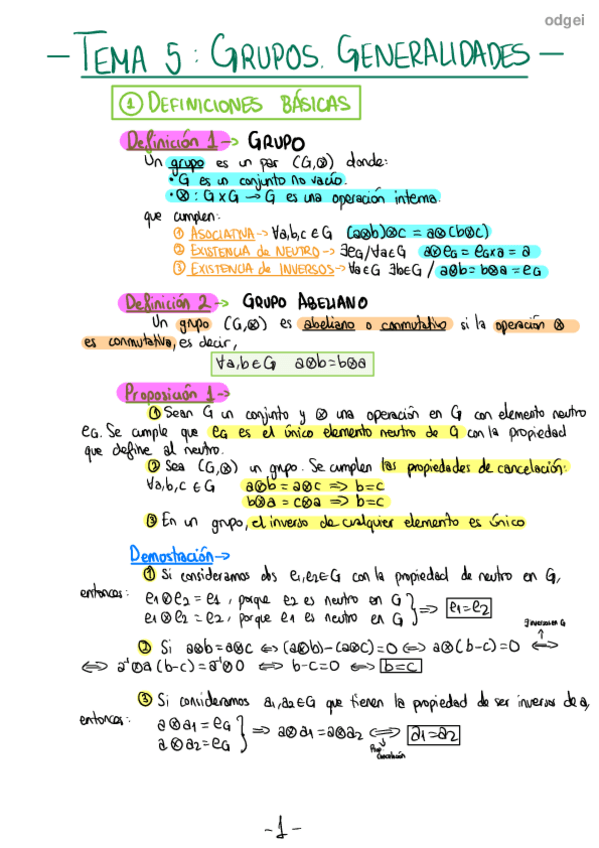 odgei
– TEMA 5 : GRUPOS. GENERALIDADES –
① DEFINICIONES BÁSICAS
Definición 1 -> GRUPO
Un grupo es un par (G,⊗) donde:
• G es un conjunto no vacío.
• ⊗ : G x G → G es una operación interna.
que cumplen:
① ASOCIATIVA -> ∀a,b,c ∈ G (a⊗b)⊗c = a⊗(b⊗c)
② EXISTENCIA de NEUTRO -> ∃eG/∀a∈G a⊗eG = eG x a = a
③ EXISTENCIA de INVERSOS -> ∀a∈G ∃b∈G / a⊗b = b⊗a = eG
Definición 2 -> GRUPO ABELIANO
Un grupo (G,⊗) es abeliano o conmutativo si la operación ⊗
es conmutativa, es decir,
∀a,b∈G a⊗b=b⊗a
Proposición 1 ->
① Sean G un conjunto y ⊗ una operación en G con elemento neutro
eG. Se cumple que eG es el único elemento neutro de G con la propiedad
que define al neutro.
② Sea (G,⊗) un grupo. Se cumplen las propiedades de cancelación:
∀a,b,c ∈ G a⊗b = a⊗c => b=c
b⊗a = c⊗a => b=c
③ En un grupo, el inverso de cualquier elemento es único
Demostración ->
① Si consideramos dos e1,e2∈G con la propiedad de neutro en G,
entonces: e1⊗e2 = e1, porque e2 es neutro en G
e1⊗e2 = e2, porque e1 es neutro en G } => e1=e2
∃ inverso en G
② Si a⊗b=a⊗c <=> (a⊗b)-(a⊗c)=0 <=> a⊗(b-c)=0 <=>
<=> a⁻¹⊗a(b-c)=a⁻¹⊗0 <=> b-c=0 <=> b=c
③ Si consideramos a1,a2∈G que tienen la propiedad de ser inversos de a,
entonces: a⊗a1 = eG
a⊗a2 = eG } => a⊗a1=a⊗a2 <=> a1=a2
Prop. cancelación
-1-